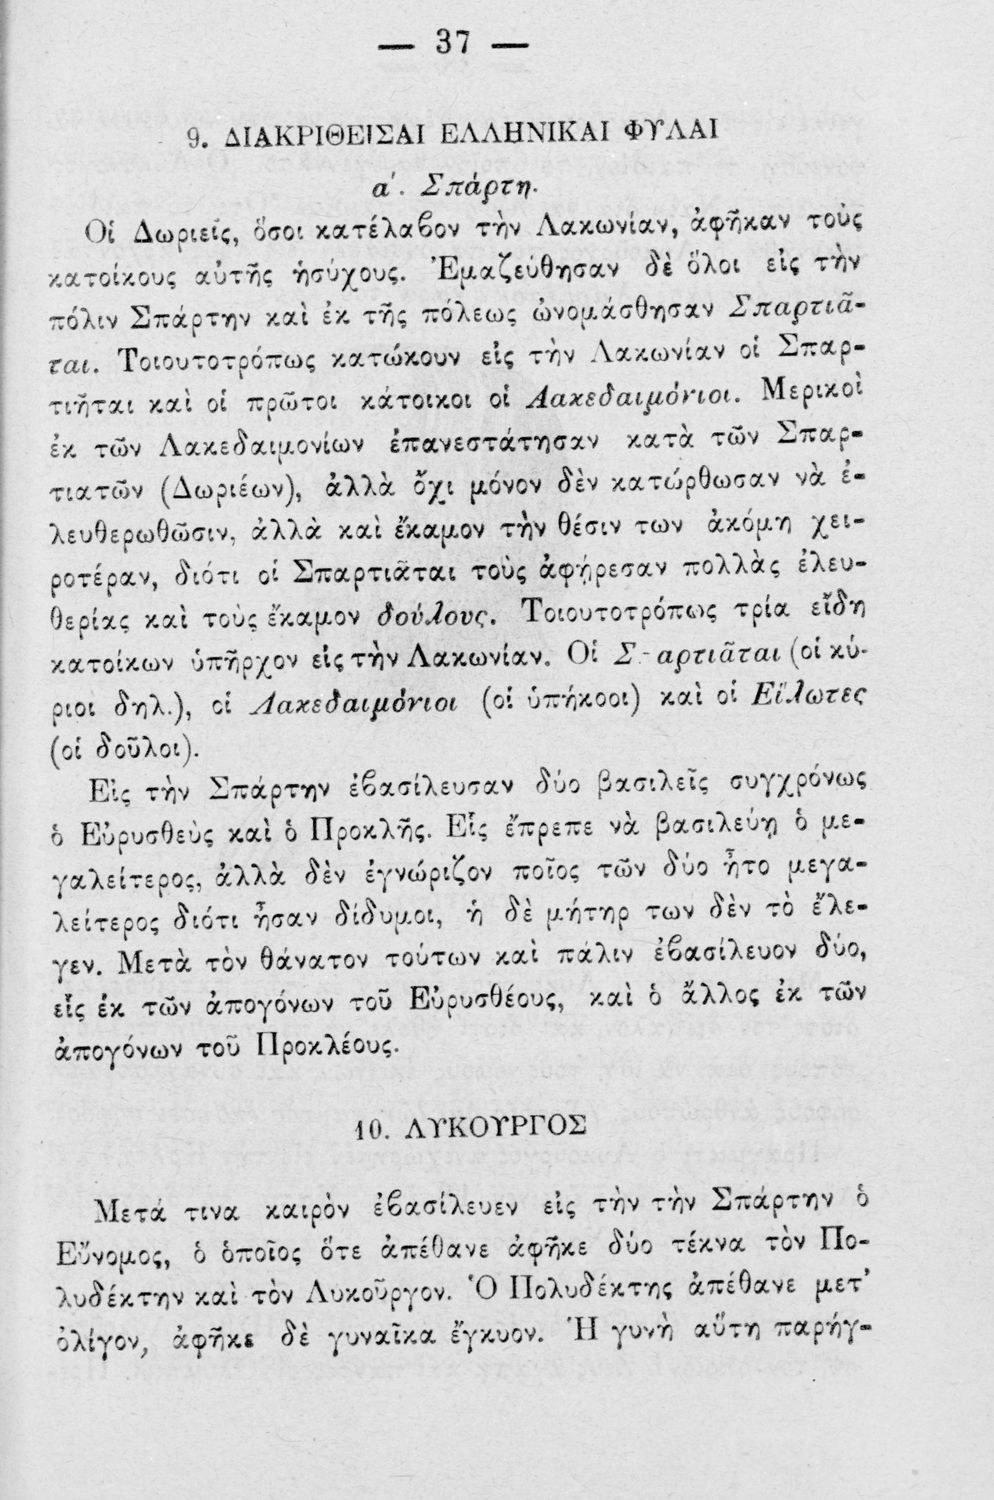 — 37 —
9. ΔΙΑΚΡΙΘΕΙΣΑΙ ΕΛΛΗΝΙΚΑΙ ΦΥΛΑΙ
α΄. Σπάρτη.
Οἱ Δωριεῖς, ὅσοι κατέλαβον τὴν Λακωνίαν, ἀφῆκαν τοὺς
κατοίκους αὐτῆς ἡσύχους. Ἐμαζεύθησαν δὲ ὅλοι εἰς τὴν
πόλιν Σπάρτην καὶ ἐκ τῆς πόλεως ὠνομάσθησαν Σπαρτιᾶ-
ται. Τοιουτοτρόπως κατώκουν εἰς τὴν Λακωνίαν οἱ Σπαρ-
τιῆται καὶ οἱ πρῶτοι κάτοικοι οἱ Λακεδαιμόνιοι. Μερικοὶ
ἐκ τῶν Λακεδαιμονίων ἐπανεστάτησαν κατὰ τῶν Σπαρ-
τιατῶν (Δωριέων), ἀλλὰ ὄχι μόνον δὲν κατώρθωσαν νὰ ἐ-
λευθερωθῶσιν, ἀλλὰ καὶ ἔκαμον τὴν θέσιν των ἀκόμη χει-
ροτέραν, διότι οἱ Σπαρτιᾶται τοὺς ἀφῄρεσαν πολλὰς ἐλευ-
θερίας καὶ τοὺς ἔκαμον δούλους. Τοιουτοτρόπως τρία εἴδη
κατοίκων ὑπῆρχον εἰς τὴν Λακωνίαν. Οἱ Σπαρτιᾶται (οἱ κύ-
ριοι δηλ.), οἱ Λακεδαιμόνιοι (οἱ ὑπήκοοι) καὶ οἱ Εἵλωτες
(οἱ δοῦλοι).
Εἰς τὴν Σπάρτην ἐβασίλευσαν δύο βασιλεῖς συγχρόνως
ὁ Εὐρυσθεὺς καὶ ὁ Προκλῆς. Εἷς ἔπρεπε νὰ βασιλεύῃ ὁ με-
γαλείτερος, ἀλλὰ δὲν ἐγνώριζον ποῖος τῶν δύο ἦτο μεγα-
λείτερος διότι ἦσαν δίδυμοι, ἡ δὲ μήτηρ των δὲν τὸ ἔλε-
γεν. Μετὰ τὸν θάνατον τούτων καὶ πάλιν ἐβασίλευον δύο,
εἷς ἐκ τῶν ἀπογόνων τοῦ Εὐρυσθέους, καὶ ὁ ἄλλος ἐκ τῶν
ἀπογόνων τοῦ Προκλέους.
10. ΛΥΚΟΥΡΓΟΣ
Μετά τινα καιρὸν ἐβασίλευεν εἰς τὴν τὴν Σπάρτην ὁ
Εὔνομος, ὁ ὁποῖος ὅτε ἀπέθανε ἀφῆκε δύο τέκνα τὸν Πο-
λυδέκτην καὶ τὸν Λυκοῦργον. Ὁ Πολυδέκτης ἀπέθανε μετ᾽
ὀλίγον, ἀφῆκε δὲ γυναῖκα ἔγκυον. Ἡ γυνὴ αὕτη παρήγ-